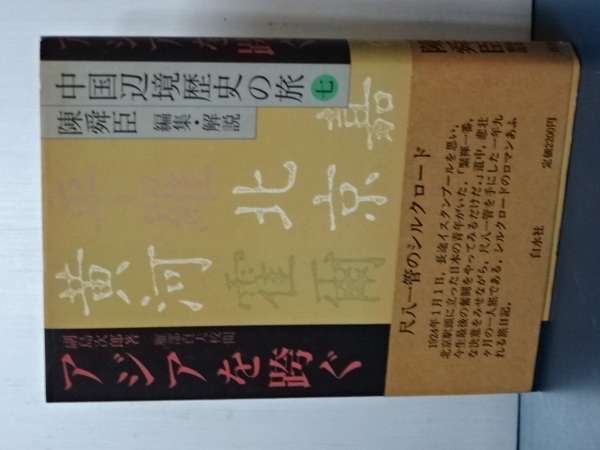 アジアを跨ぐ
中国辺境歴史の旅 七
陳舜臣 編集 解説
嘉
北京
黄河
霍爾
副島次郎著
アジアを跨ぐ
尺八一管のシルクロード
1924年1月1日、長途イスタンブールを思い、
北京駅頭に立った日本の青年がいた。「緊褌一番、
今生最後の奮闘をやってみるだけだ。」道中、悲壮
な決意をみせながら、尺八一管を手にした一年九
ヶ月の一人旅である。シルクロードのロマンあふ
れる旅日記。
白水社
定価2200円
陳舜臣